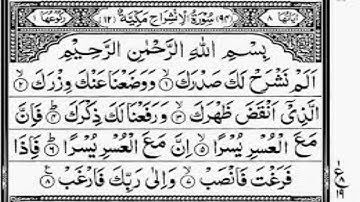 اٰيَاتُهَا ٨ (٩٤) سُوْرَةُ الْاِنْشِرَاحِ مَكِّيَّةٌ (١٢) رُكُوْعُهَا ١
بِسْمِ اللّٰهِ الرَّحْمٰنِ الرَّحِيْمِ
اَلَمْ نَشْرَحْ لَكَ صَدْرَكَ ۙ ١ وَوَضَعْنَا عَنْكَ وِزْرَكَ ۙ ٢
الَّذِيْۤ اَنْقَضَ ظَهْرَكَ ۙ ٣ وَرَفَعْنَا لَكَ ذِكْرَكَ ؕ ٤ فَاِنَّ
مَعَ الْعُسْرِ يُسْرًا ۙ ٥ اِنَّ مَعَ الْعُسْرِ يُسْرًا ؕ ٦ فَاِذَا
فَرَغْتَ فَانْصَبْ ۙ ٧ وَاِلٰى رَبِّكَ فَارْغَبْ ٨
ع
٨
١٩